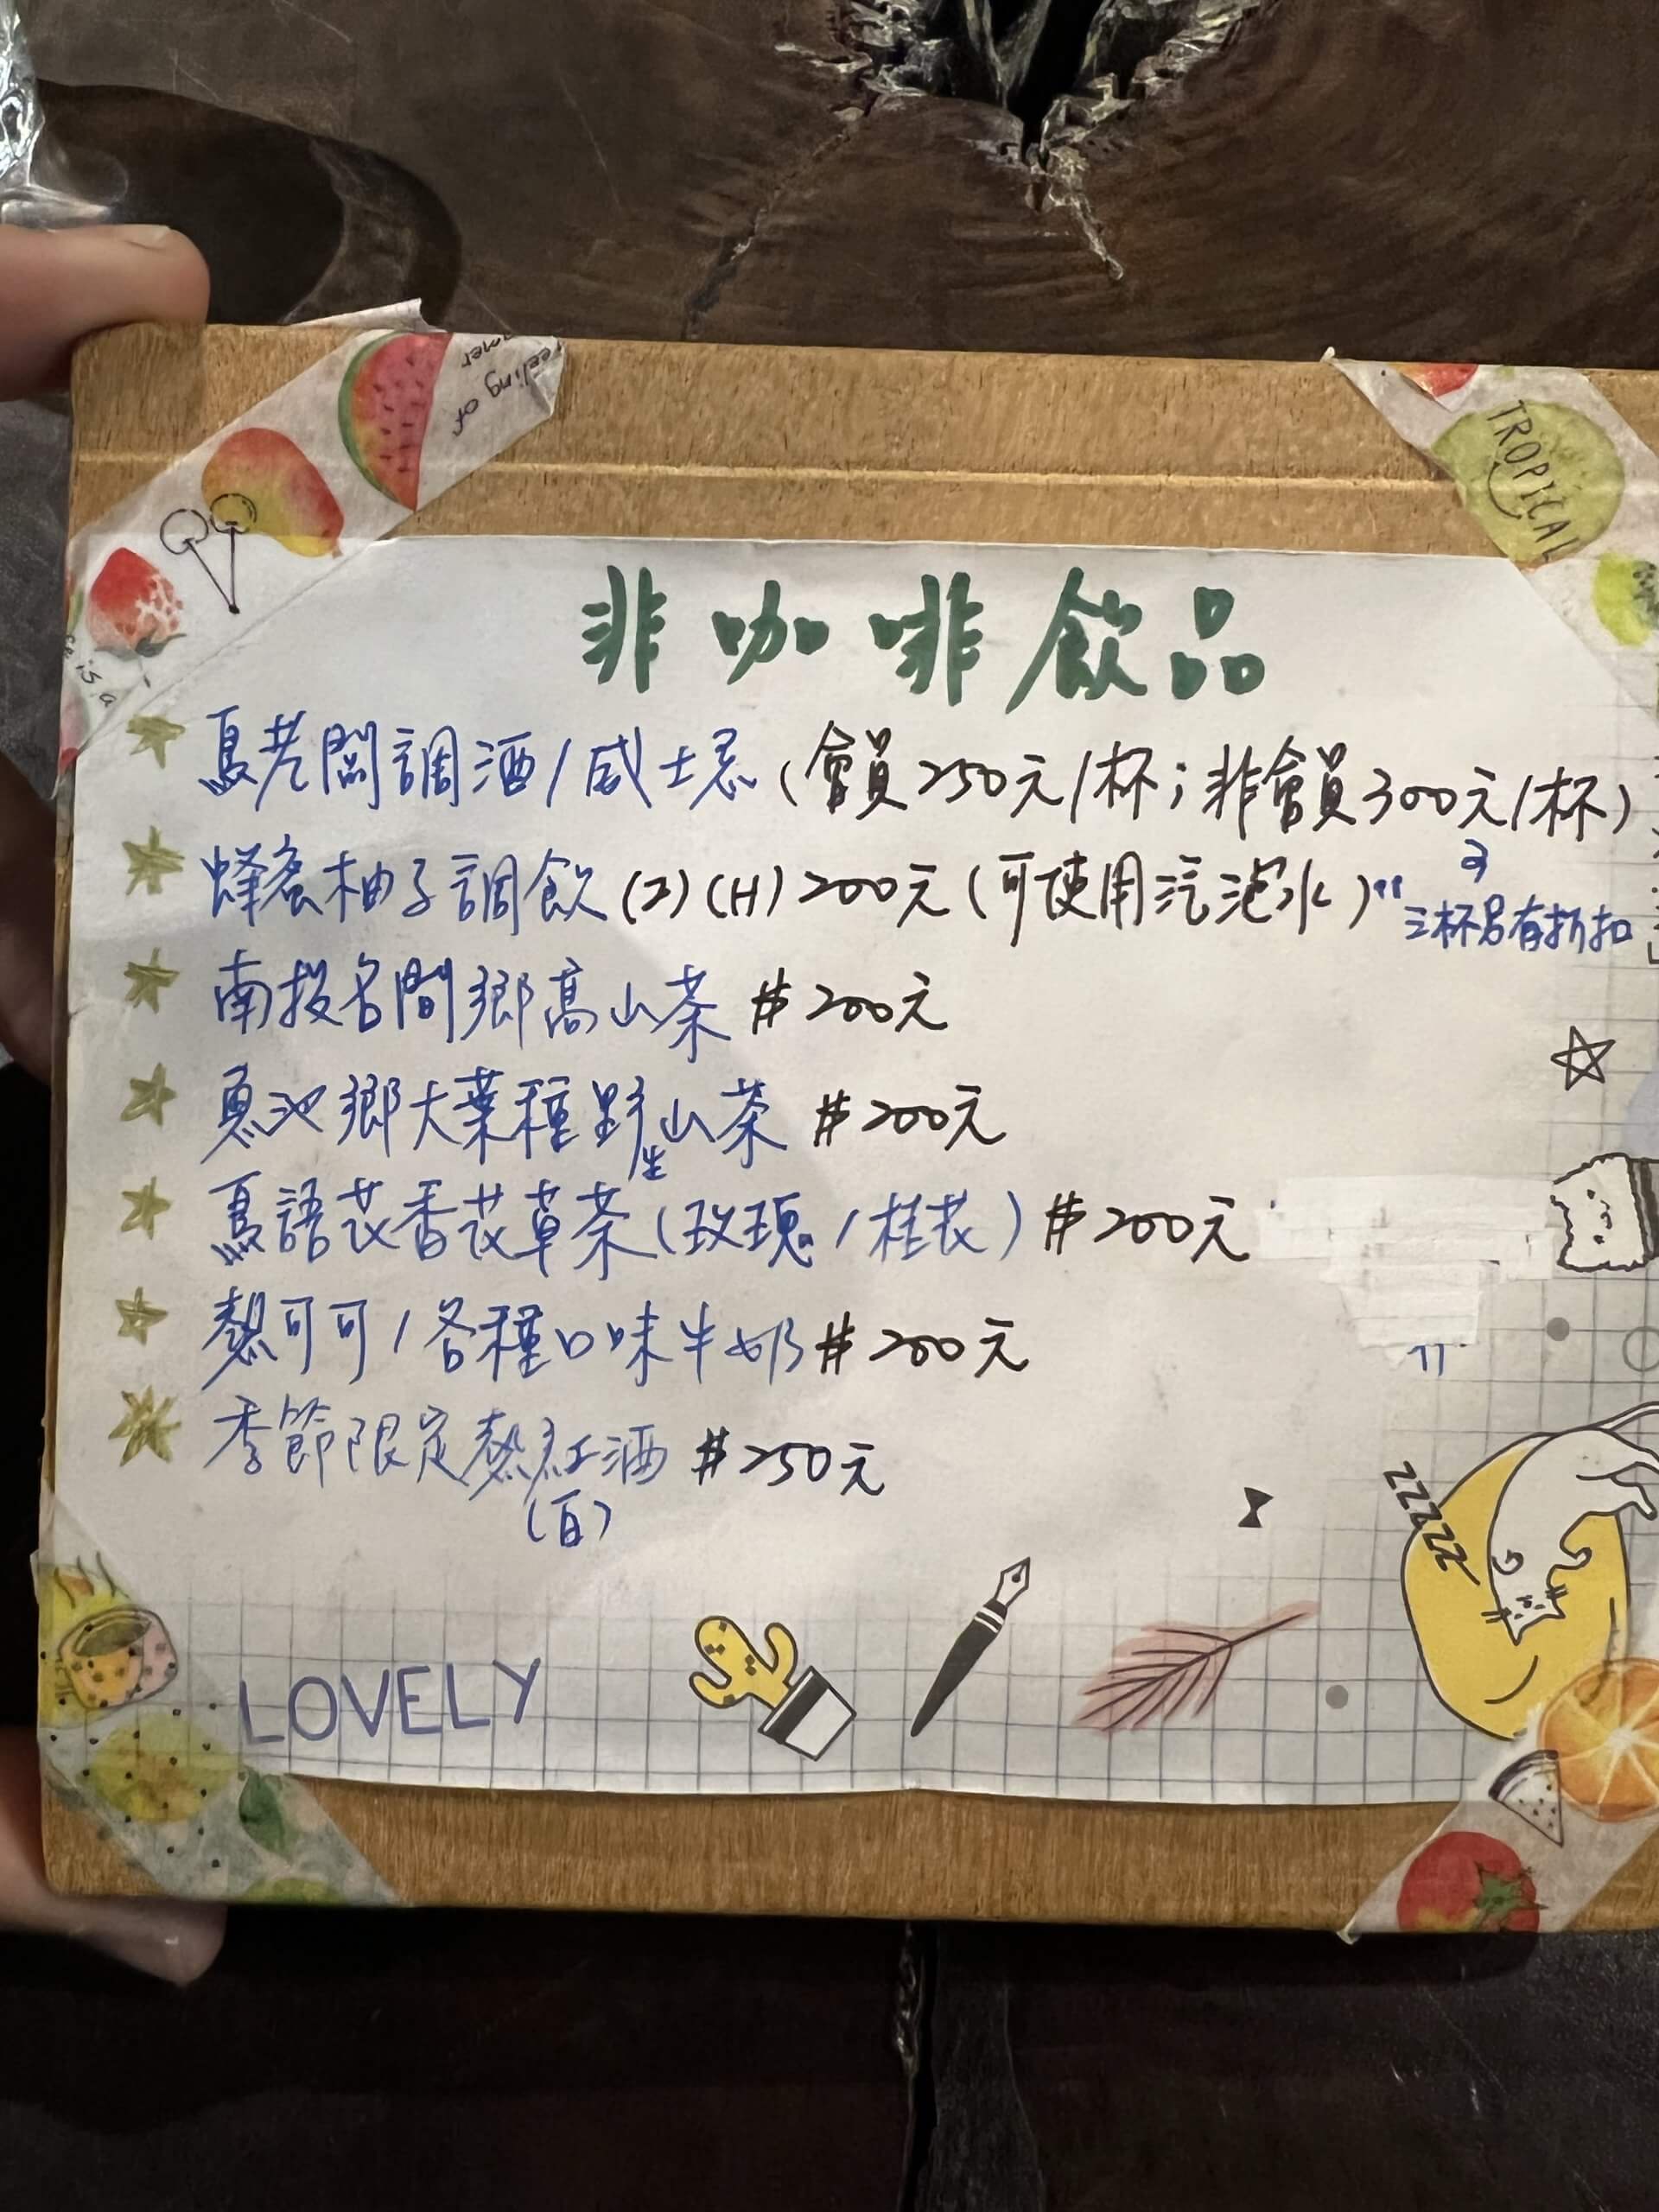 feeling of
TROPICAL
is a
非咖啡飲品
老闆調酒/威士忌(會員250元/杯;非會員300元/杯)
三杯另有折扣
蜂蜜柚子調飲(I)(H)200元(可使用汽泡水)
南投名間鄉高山茶 #200元
魚池鄉大葉種野生山茶 #200元
語花香花草茶(玫瑰/桂花) #200元
熱可可/各種口味牛奶 #200元
季節限定熱紅酒 #250元
(白)
zzzzz
LOVELY